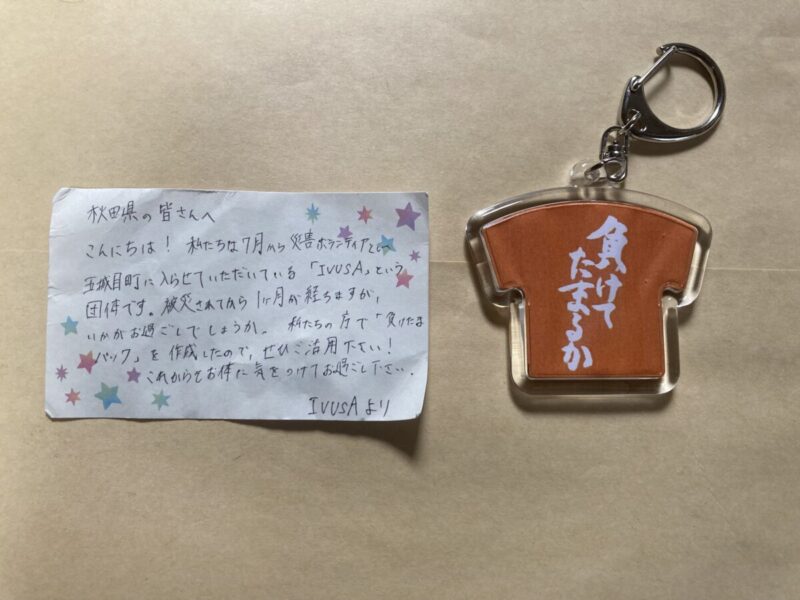 秋田県の皆さんへ
こんにちは! 私たちは7月から災害ボランティアとして
五城目町に入らせていただいている「IVUSA」という
団体です。被災されてから1ヶ月が経ちますが、
いかがお過ごしでしょうか。 私たちの方で「負けたま
パック」を作成したので、ぜひご活用下さい!
これからもお体に気をつけてお過ごし下さい.
IVUSAより
負けて
たまるか